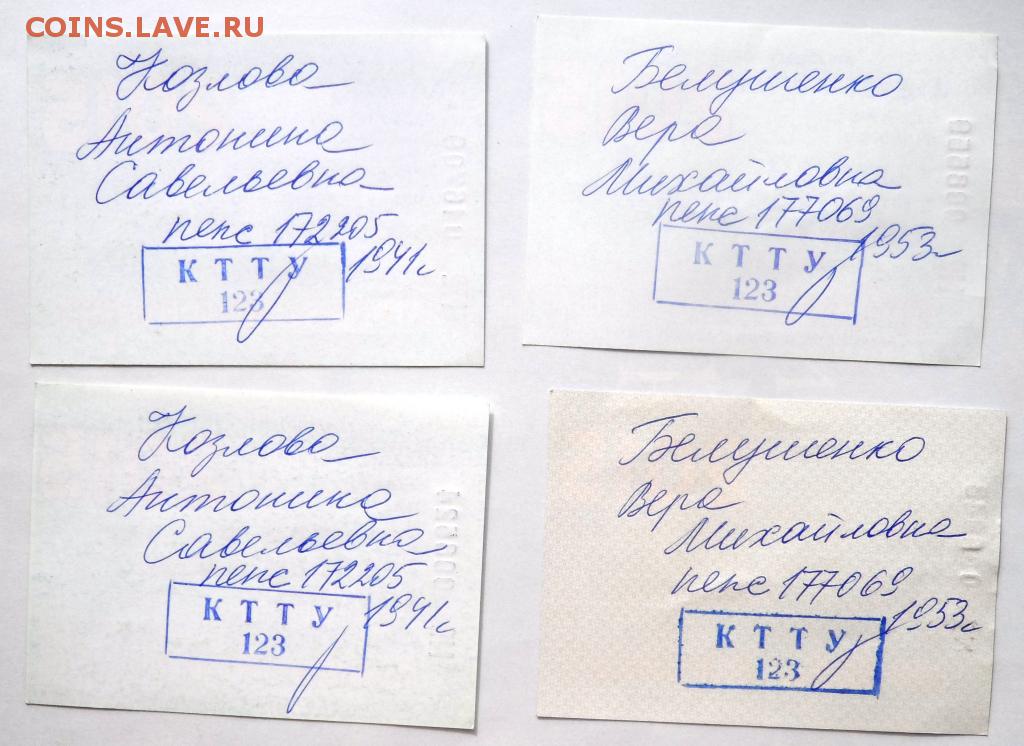 COINS.LAVE.RU
Козлова
Антонина
Савельевна
пенс 172205
1941г
КТТУ
123
Белушенко
Вера
Михайловна
пенс 177069
1953г
КТТУ
123
Козлова
Антонина
Савельевна
пенс 172205
1941г
КТТУ
123
Белушенко
Вера
Михайловна
пенс 177069
1953г
КТТУ
123